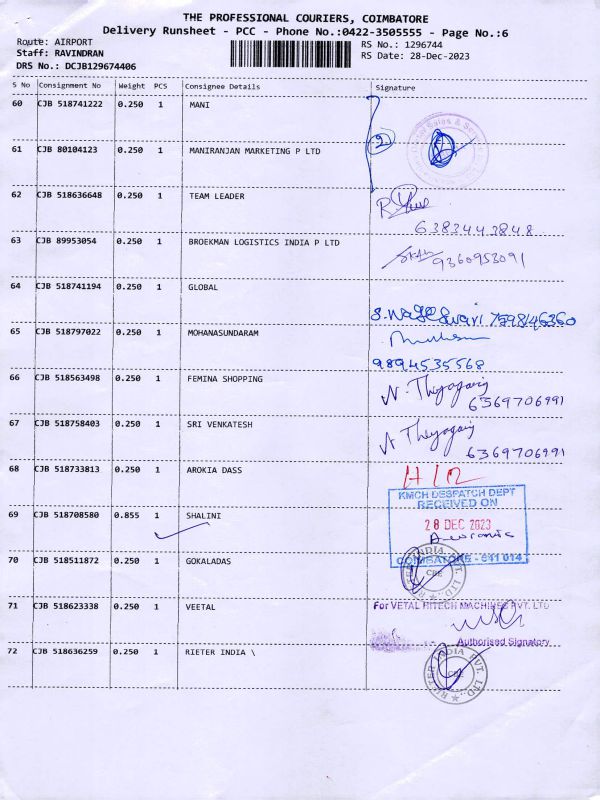 THE PROFESSIONAL COURIERS, COIMBATORE
Delivery Runsheet - PCC - Phone No.:0422-3505555 - Page No.:6
Route: AIRPORT
RS No.: 1296744
Staff: RAVINDRAN
RS Date: 28-Dec-2023
DRS No.: DCJB129674406
S No Consignment No Weight PCS Consignee Details Signature
60 CJB 518741222 0.250 1 MANI
2
61 CJB 80104123 0.250 1 MANIRANJAN MARKETING P LTD
62 CJB 518636648 0.250 1 TEAM LEADER
6383443848
63 CJB 89953054 0.250 1 BROEKMAN LOGISTICS INDIA P LTD
9360953091
64 CJB 518741194 0.250 1 GLOBAL
S. Nageswari 7598146360
65 CJB 518797022 0.250 1 MOHANASUNDARAM
9894535568
66 CJB 518563498 0.250 1 FEMINA SHOPPING
N. Thyagaraj
6369706991
67 CJB 518758403 0.250 1 SRI VENKATESH
N Thyagaraj
6369706991
68 CJB 518733813 0.250 1 AROKIA DASS
KMCH DESPATCH DEPT
RECEIVED ON
69 CJB 518708580 0.855 1 SHALINI
28 DEC 2023
70 CJB 518511872 0.250 1 GOKALADAS
COIMBATORE - 641 014.
RIETER INDIA PVT. LTD.,
CBE
71 CJB 518623338 0.250 1 VEETAL
For VETAL HITECH MACHINES PVT. LTD
Authorised Signatory
72 CJB 518636259 0.250 1 RIETER INDIA \
RIETER INDIA PVT. LTD.,
CBE